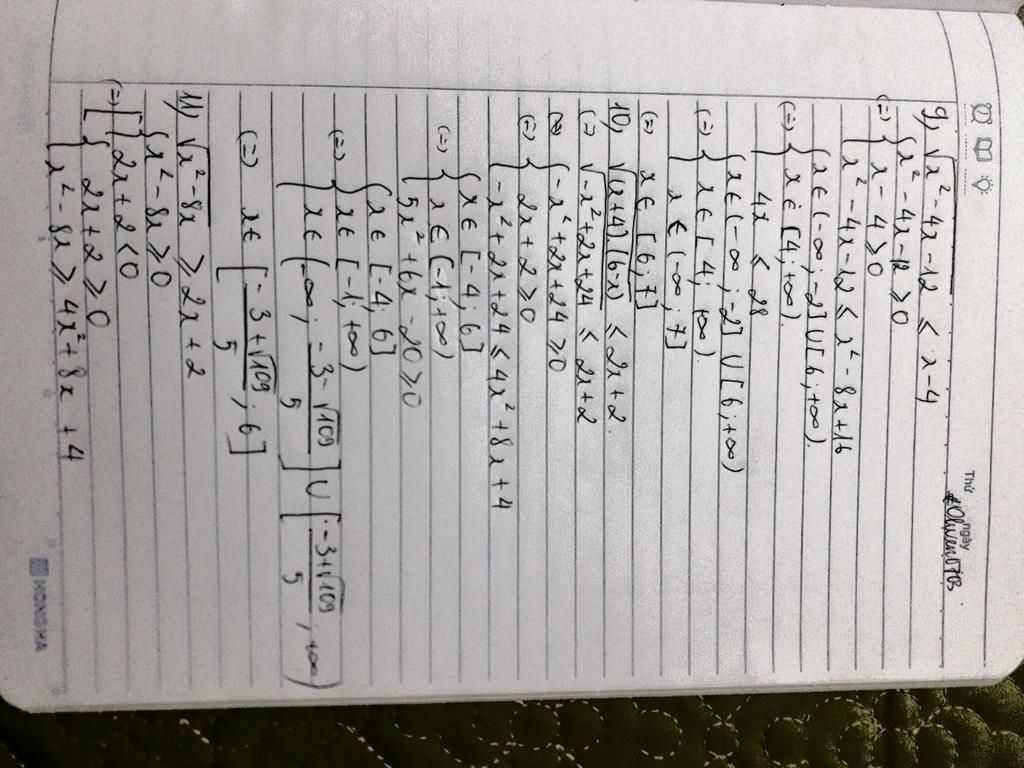 Thứ ngày
9, √x² - 4x - 12 ≤ x - 4
(=) { x² - 4x - 12 ≥ 0
x - 4 ≥ 0
x² - 4x - 12 ≤ x² - 8x + 16
(=) { x ∈ (-∞; -2] ∪ [6; +∞).
x ∈ [4; +∞).
4x ≤ 28
(=) { x ∈ (-∞; -2] ∪ [6; +∞)
x ∈ [4; +∞).
x ∈ (-∞; 7]
(=) x ∈ [6; 7]
10, √(x+4)(6-x) ≤ 2x + 2.
(=) √-x² + 2x + 24 ≤ 2x + 2
(=) { -x² + 2x + 24 ≥ 0
2x + 2 ≥ 0
-x² + 2x + 24 ≤ 4x² + 8x + 4
(=) { x ∈ [-4; 6]
x ∈ [-1; +∞)
5x² + 6x - 20 ≥ 0
(=) { x ∈ [-4; 6]
x ∈ [-1; +∞)
x ∈ (-∞; -3-√109/5] ∪ [-3+√109/5; +∞)
(=) x ∈ [-3+√109/5; 6]
11, √x² - 8x ≥ 2x + 2
(=) [ { x² - 8x ≥ 0
2x + 2 < 0
{ 2x + 2 ≥ 0
x² - 8x ≥ 4x² + 8x + 4
HONG HA